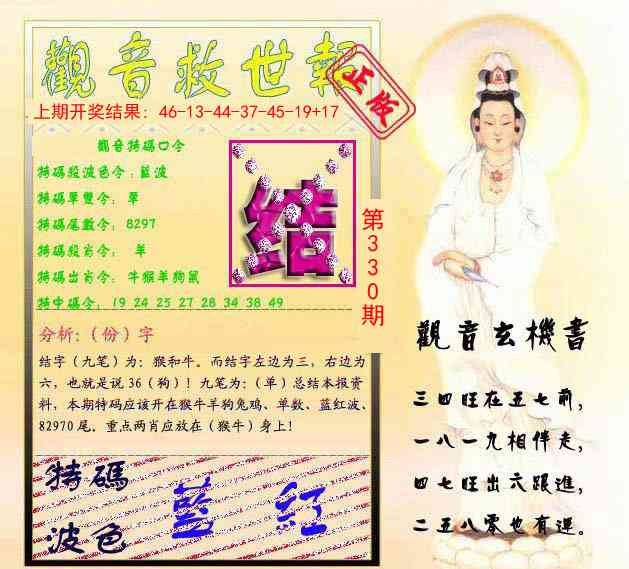 觀音救世報
正版
上期开奖结果：46-13-44-37-45-19+17
觀音特碼口令
特碼段波色令：藍波
特碼單雙令： 單
特碼尾數令： 8297
特碼段肖令： 單
特碼出肖令： 牛猴羊狗鼠
特中碼令： 19 24 25 27 28 34 38 49
结
第330期
分析：（份）字
结字（九笔）为：猴和牛。而结字左边为三，右边为
六，也就是说36（狗）！九笔为：（单）总结本报资
料，本期特码应该开在猴牛羊狗兔鸡、单数、蓝红波、
82970尾。重点两肖应放在（猴牛）身上！
特碼
波色
藍 紅
觀音玄機書
三四旺在五七前，
一八一九相伴走，
四七旺出六跟進，
二五八零也有運。